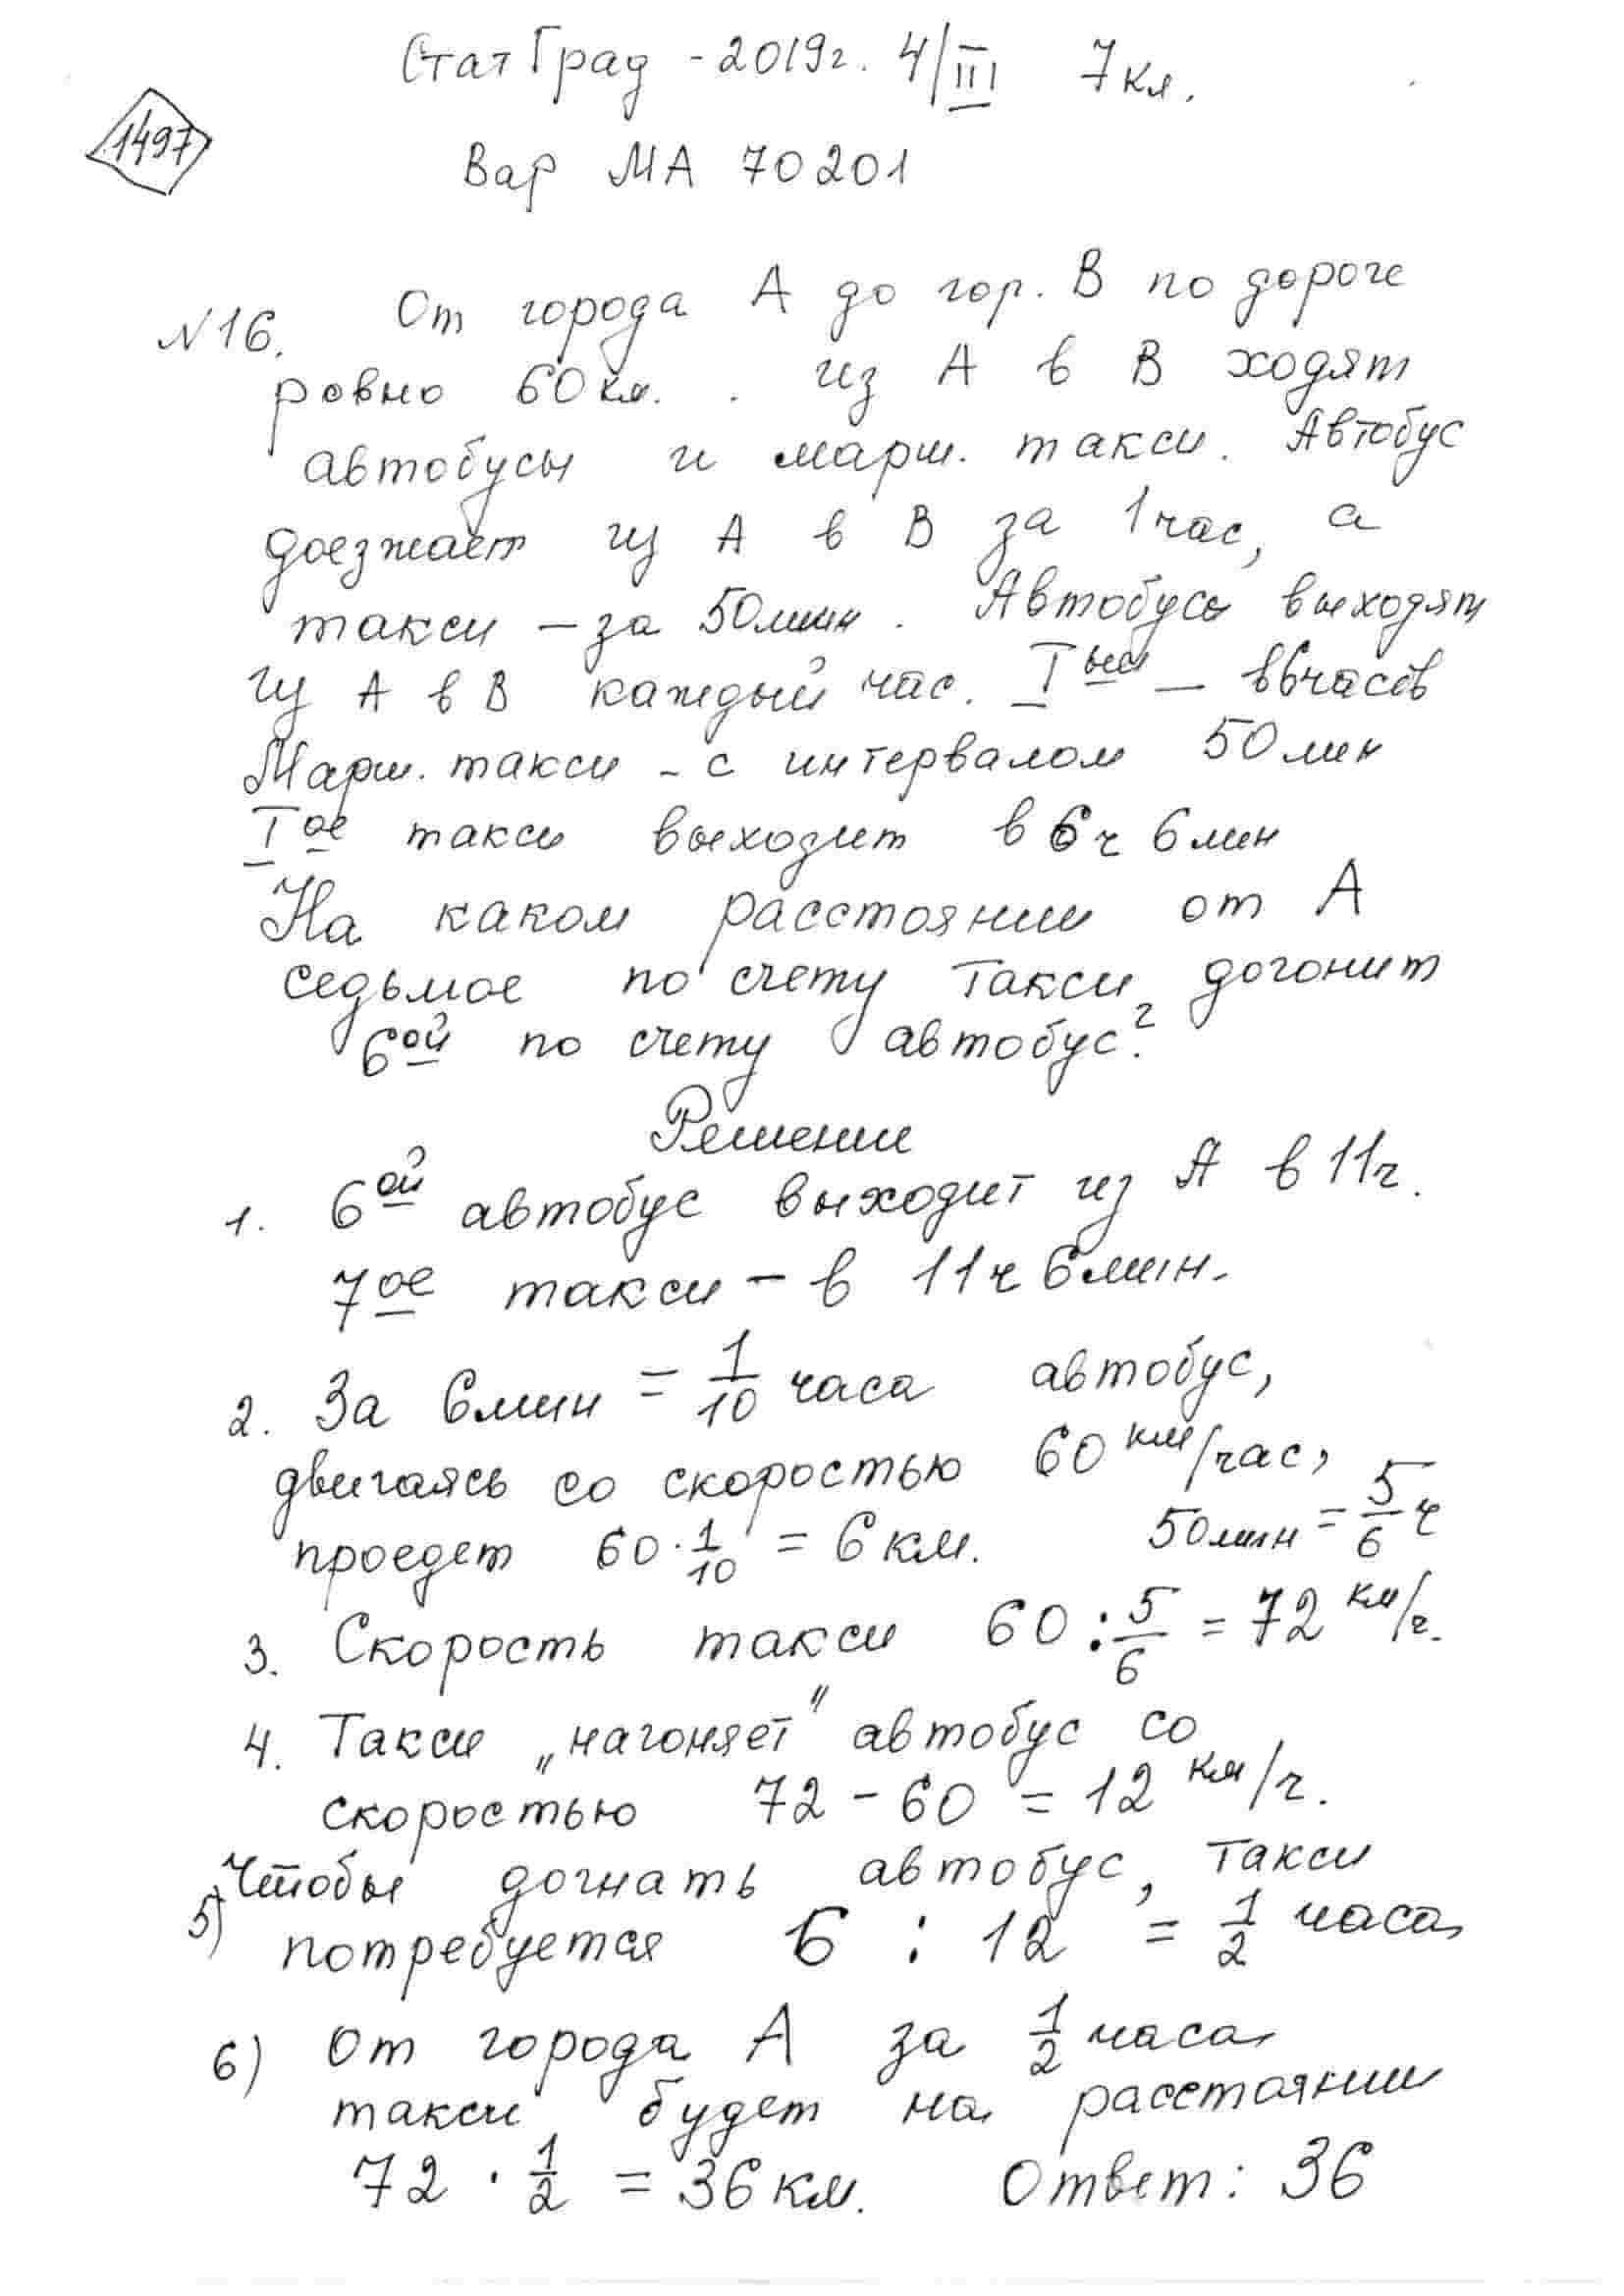 СтатГрад - 2019г. 4/III 7кл.
1497
Вар МА 70201
№16. От города А до гор. В по дороге
ровно 60 км. . из А в В ходят
автобусы и марш. такси. Автобус
доезжает из А в В за 1 час, а
такси - за 50 мин. Автобусы выходят
из А в В каждый час. Iый - в 6 часов
Марш. такси - с интервалом 50 мин
Iое такси выходит в 6 ч 6 мин
На каком расстоянии от А
седьмое по счету такси догонит
6ой по счету автобус?
Решение
1. 6ой автобус выходит из А в 11ч.
7ое такси - в 11ч 6мин.
2. За 6мин = 1/10 часа автобус,
двигаясь со скоростью 60 км/час,
проедет 60 · 1/10 = 6 км. 50мин = 5/6 ч
3. Скорость такси 60 : 5/6 = 72 км/ч.
4. Такси „нагоняет" автобус со
скоростью 72 - 60 = 12 км/ч.
5) Чтобы догнать автобус, такси
потребуется 6 : 12 = 1/2 часа
6) От города А за 1/2 часа
такси будет на расстоянии
72 · 1/2 = 36 км. Ответ: 36